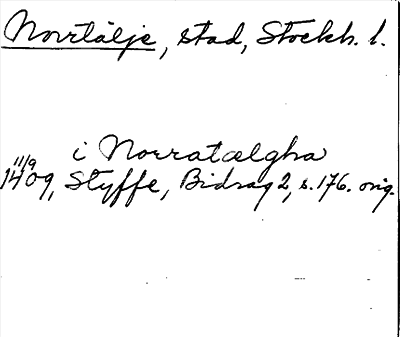 Norrtälje, stad, Stockh. l.
i Norratælgha
11/9
1409, Styffe, Bidrag 2, s. 176. orig.